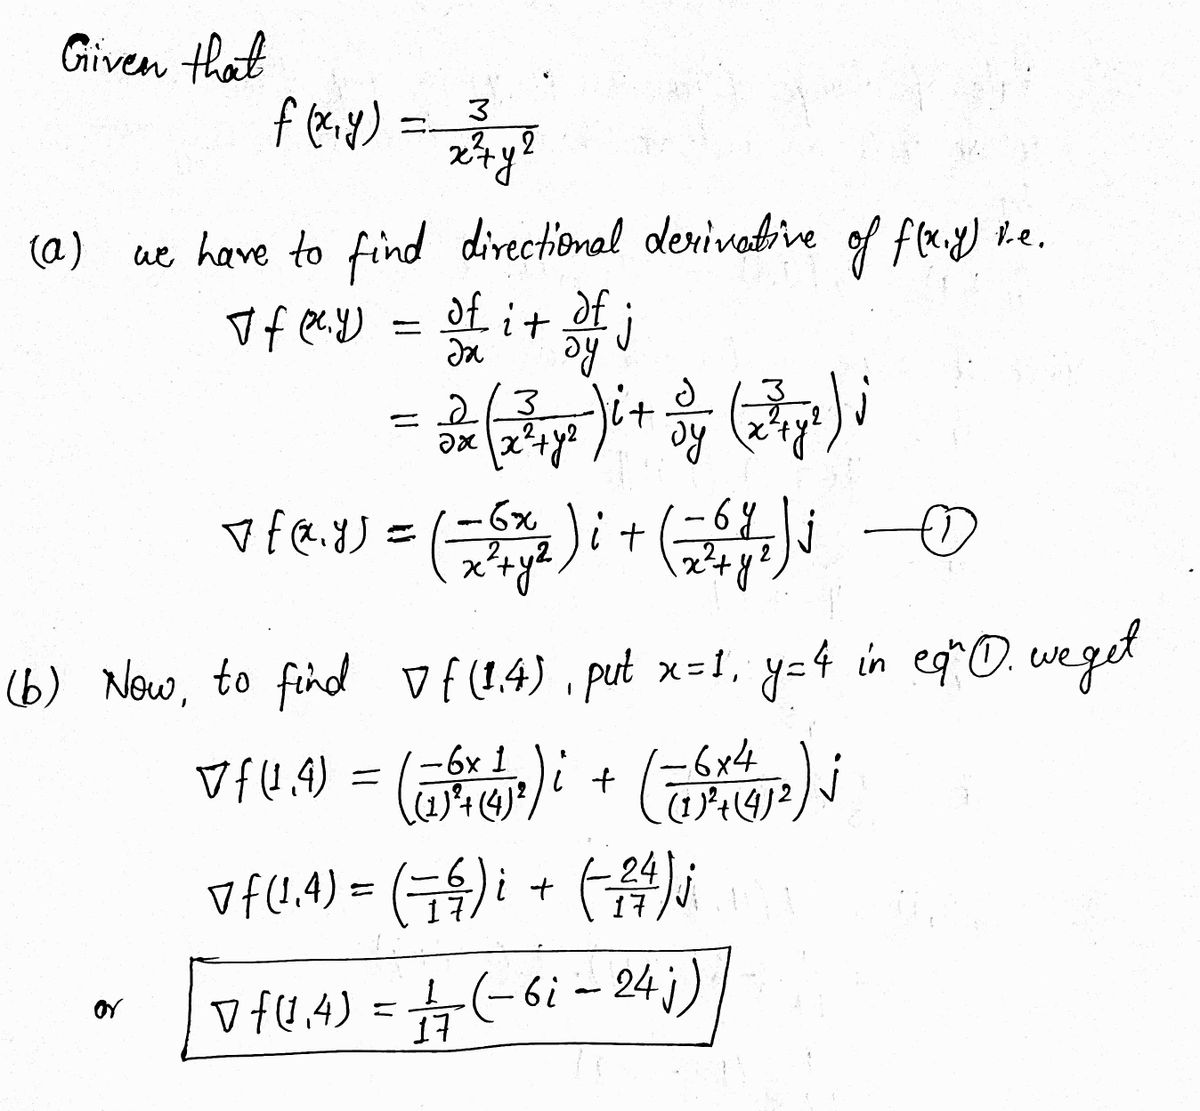 Given that
f(x,y) = 3/(x²+y²)
(a) we have to find directional derivative of f(x,y) i.e.
∇f(x,y) = ∂f/∂x i + ∂f/∂y j
= ∂/∂x (3/(x²+y²)) i + ∂/∂y (3/(x²+y²)) j
∇f(x,y) = (-6x/(x²+y²)) i + (-6y/(x²+y²)) j —①
(b) Now, to find ∇f(1,4), put x=1, y=4 in eqⁿ ①. we get
∇f(1,4) = (-6×1/((1)²+(4)²)) i + (-6×4/((1)²+(4)²)) j
∇f(1,4) = (-6/17) i + (-24/17) j
or ∇f(1,4) = 1/17 (-6i - 24j)